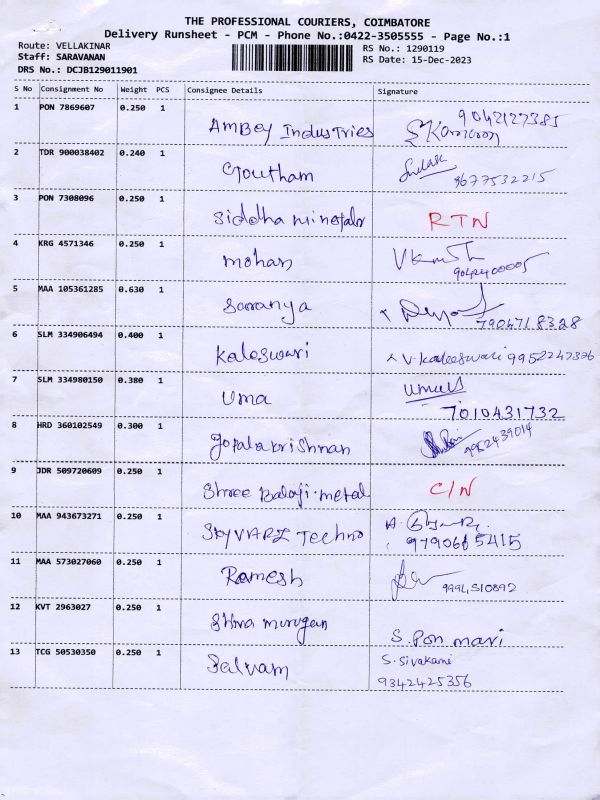 THE PROFESSIONAL COURIERS, COIMBATORE
Delivery Runsheet - PCM - Phone No.:0422-3505555 - Page No.:1
Route: VELLAKINAR RS No.: 1290119
Staff: SARAVANAN RS Date: 15-Dec-2023
DRS No.: DCJB129011901
S No Consignment No Weight PCS Consignee Details Signature
1 PON 7869607 0.250 1 Ambey Industries 9042127385
2 TDR 900038402 0.240 1 Goutham 9677532215
3 PON 7308096 0.250 1 Siddha RTN
4 KRG 4571346 0.250 1 mohan 9042400005
5 MAA 105361285 0.630 1 Saranya 7904718328
6 SLM 334906494 0.400 1 Kaleswari V. Kaleeswari 9952247326
7 SLM 334980150 0.380 1 Uma 7010431732
8 HRD 360102549 0.300 1 gopalakrishnan 9952439014
9 JDR 509720609 0.250 1 Shree Balaji metal C/N
10 MAA 943673271 0.250 1 Techno 9790665415
11 MAA 573027060 0.250 1 Ramesh 9994510892
12 KVT 2963027 0.250 1 Shiva murugan S. Pon mari
13 TCG 50530350 0.250 1 Selvam S. Sivakami
9342425356